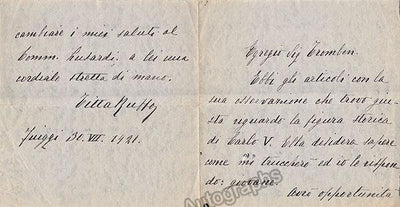 Egregio Sig Tromben.
Ebbi gli articoli con la
sua osservazione che trovo giu-
sta reguardo la figura storica
di Carlo V. Ella disidera sapere
come mi truccherò ed io le rispon-
do: giovane.
Avrò opportunità
cambiare i miei saluti al
Comm. Lusardi. a lei una
cordiale stretta di mano.
Titta Ruffo
Fiuggi 30. VII. 1921.
Autographs